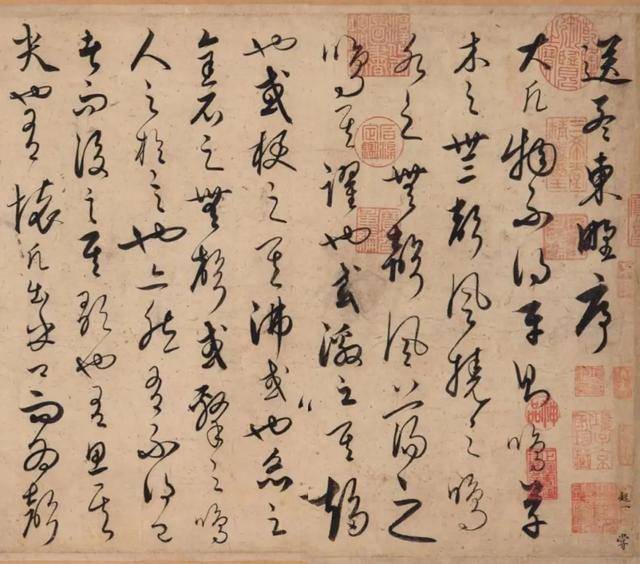 送孟東野序
大凡物不得平則鳴草
木之無聲風撓之鳴
水之無聲風蕩之
鳴其躍也或激之其趨
也或梗之其沸或也炙之
金石之無聲或擊之鳴
人之於言也亦然有不得已
者而後言其歌也有思其
哭也有懷凡出乎口而為聲
神品